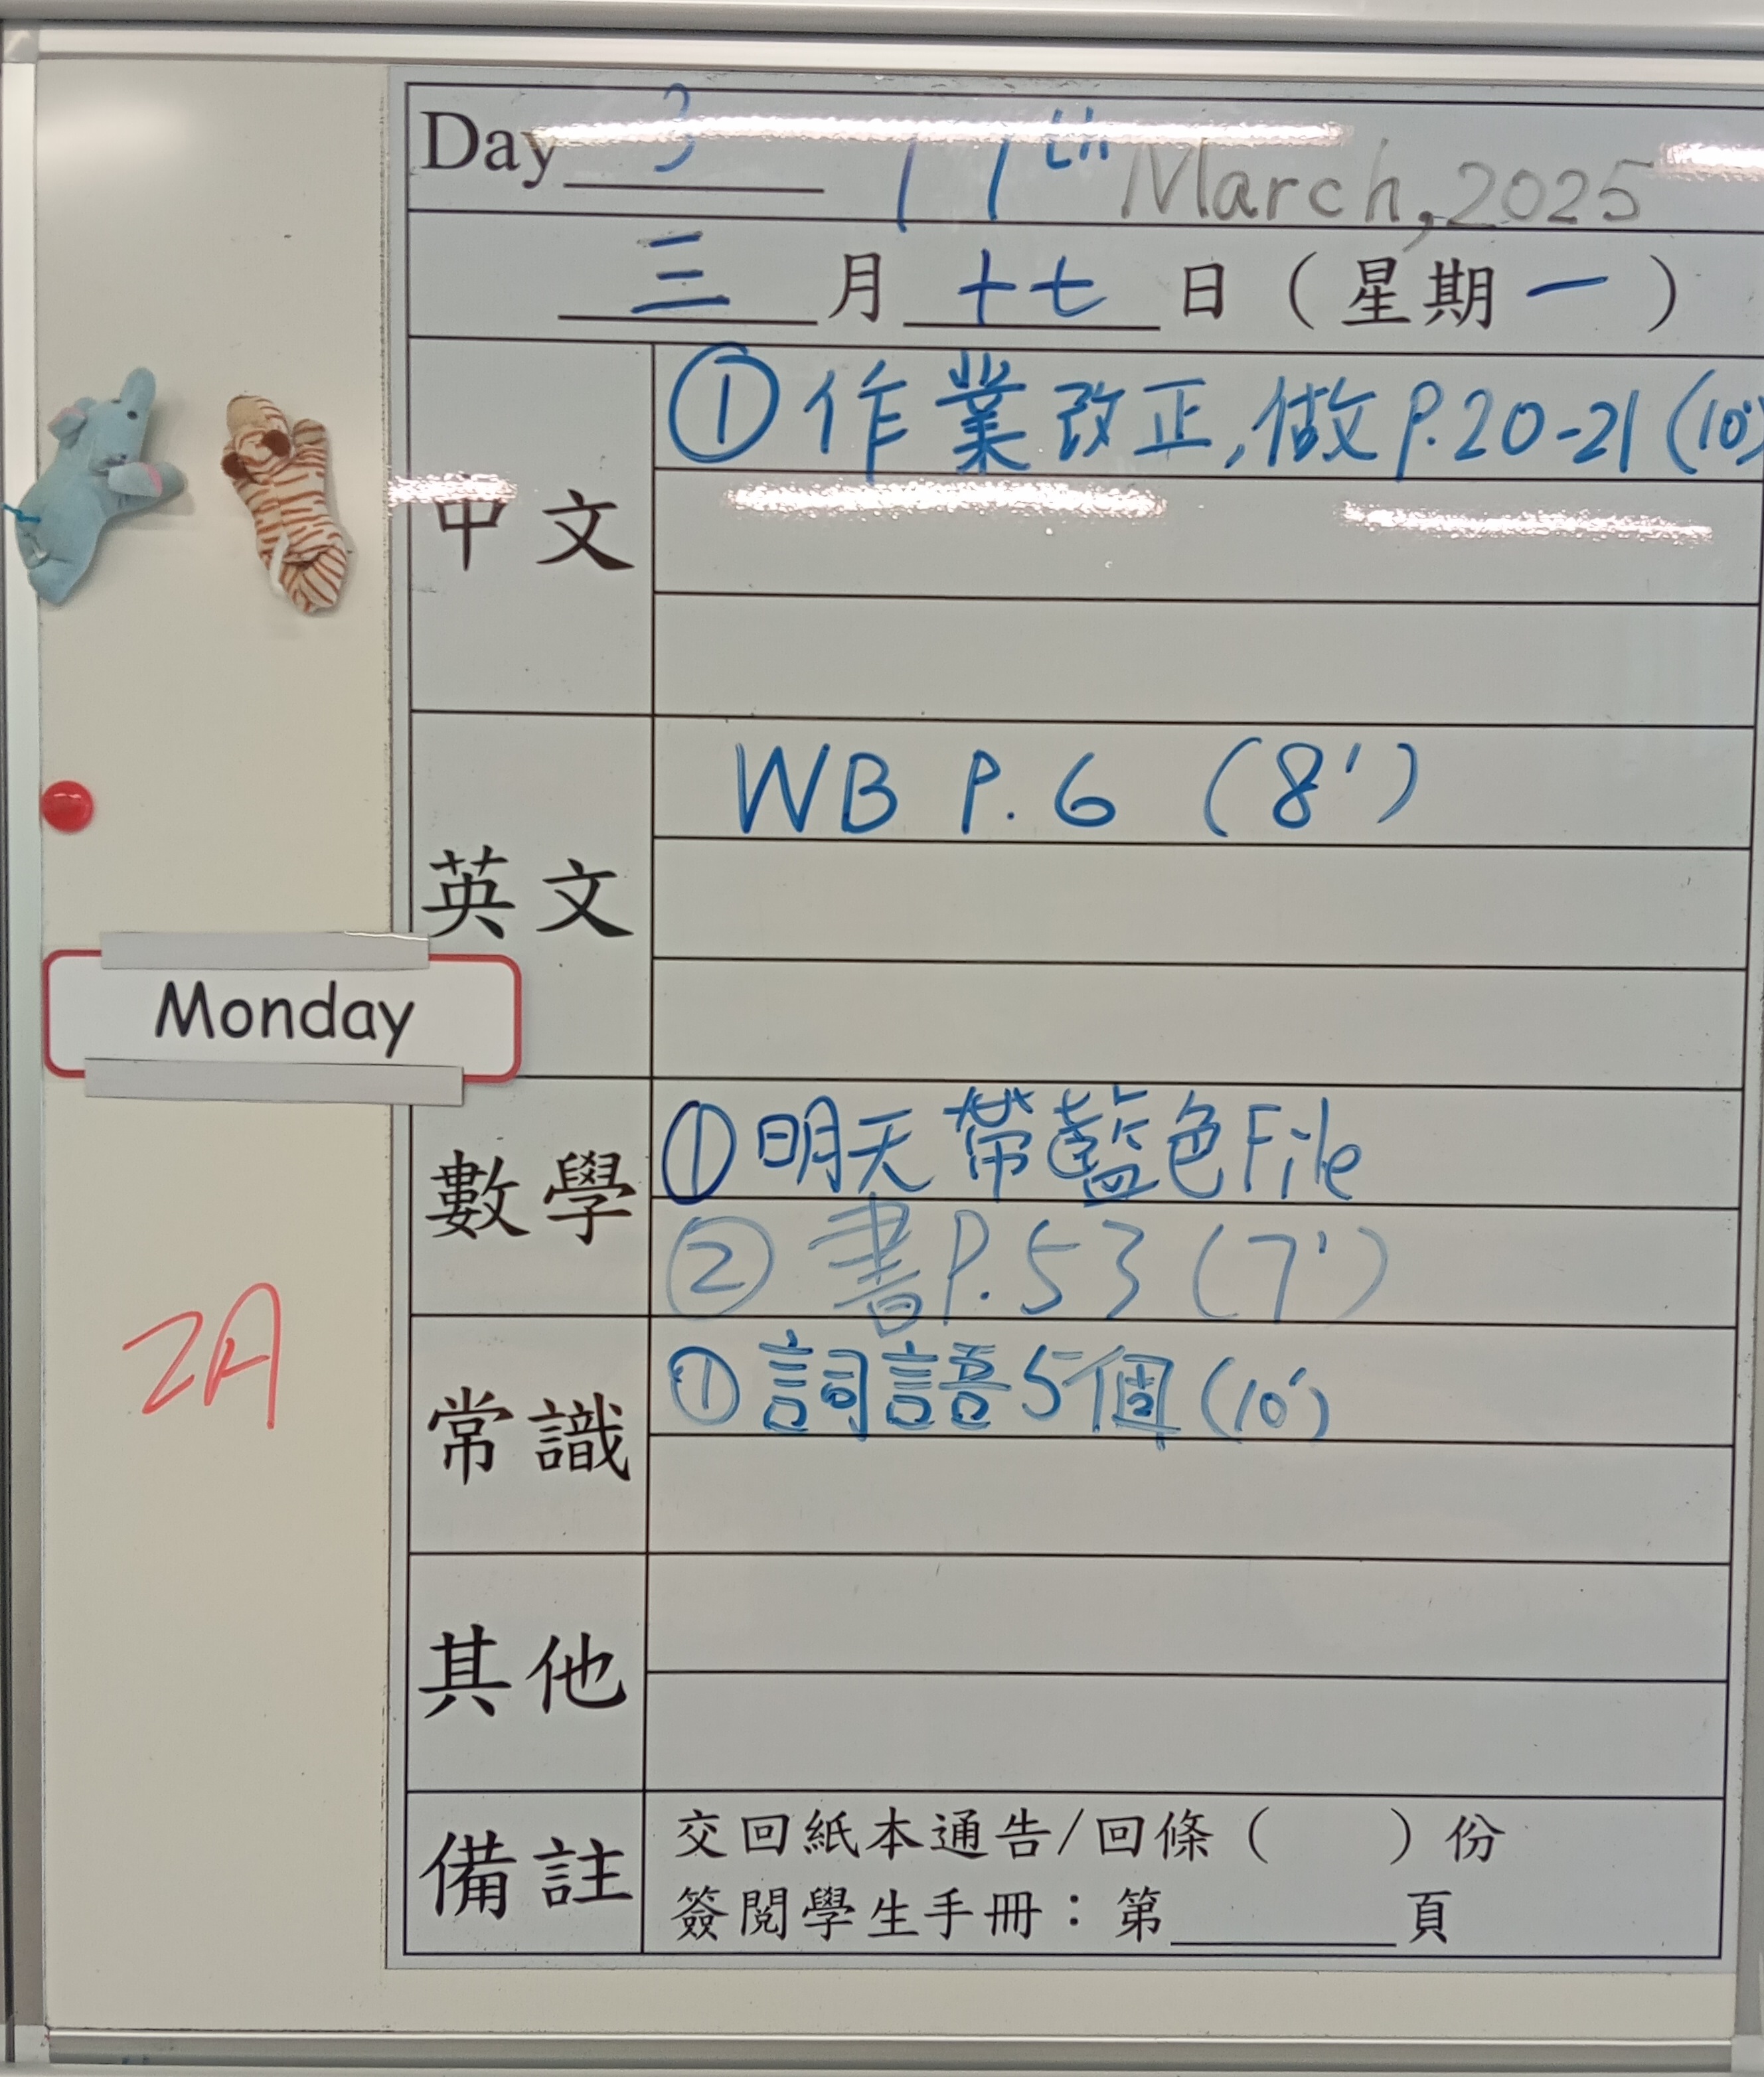 Day 3 17th March, 2025
三月十七日（星期一）
中文
①作業改正,做P.20-21(10')
英文
WB P.6 (8')
Monday
數學
①明天帶藍色File
②書P.53(7')
2A
常識
①詞語5個(10')
其他
備註
交回紙本通告/回條（ ）份
簽閱學生手冊：第______頁